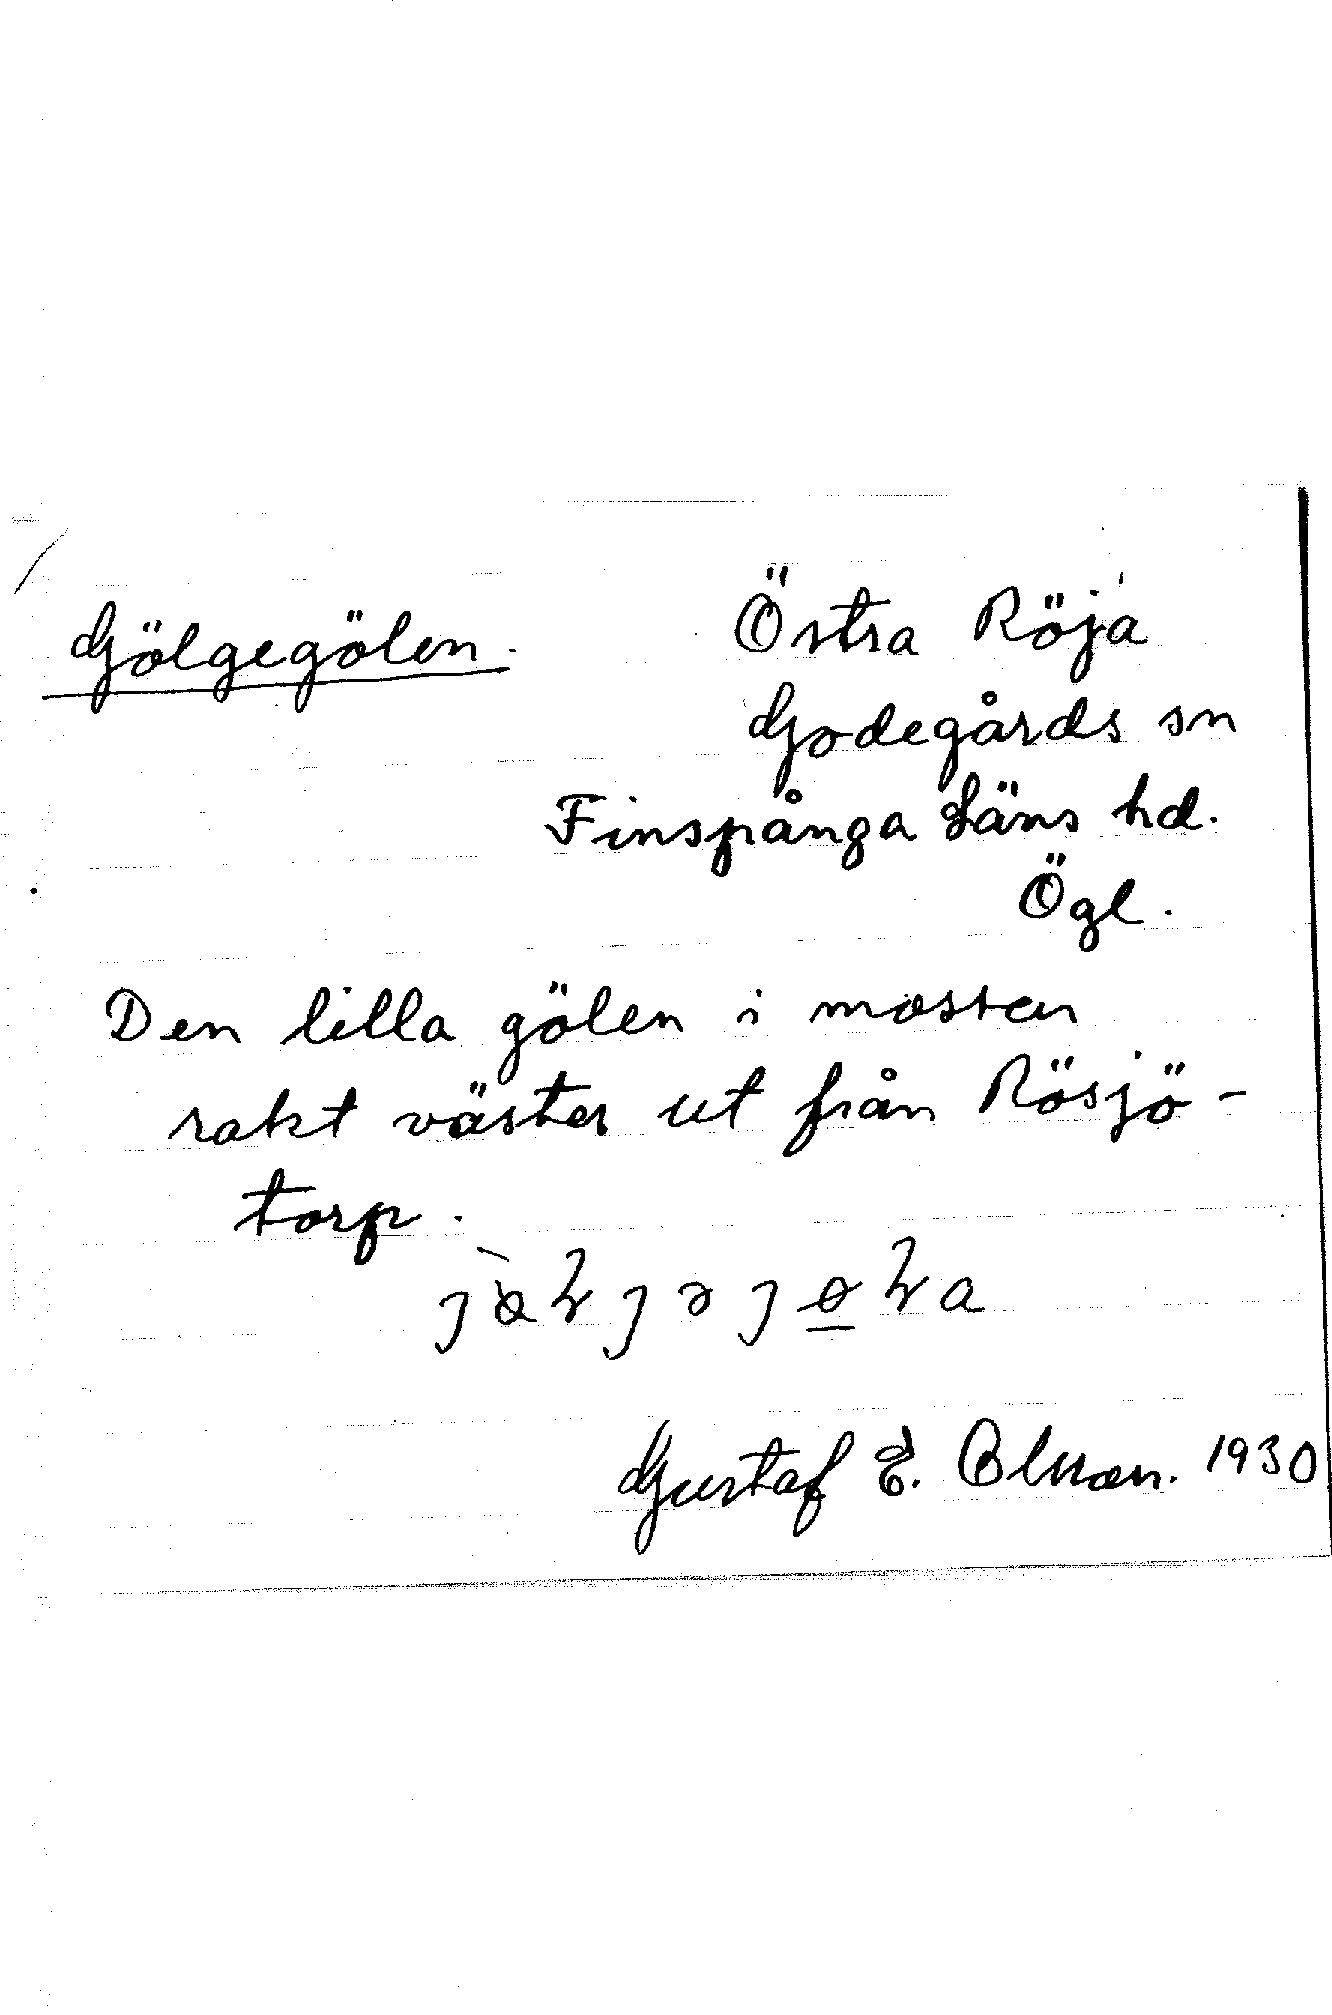 Gölgegölen.
Östra Röja
Godegårds sn
Finspånga Läns hd.
Ögl.
Den lilla gölen i mossen
rakt väster ut från Rösjö-
torp.
Gustaf E. Olsson. 1930